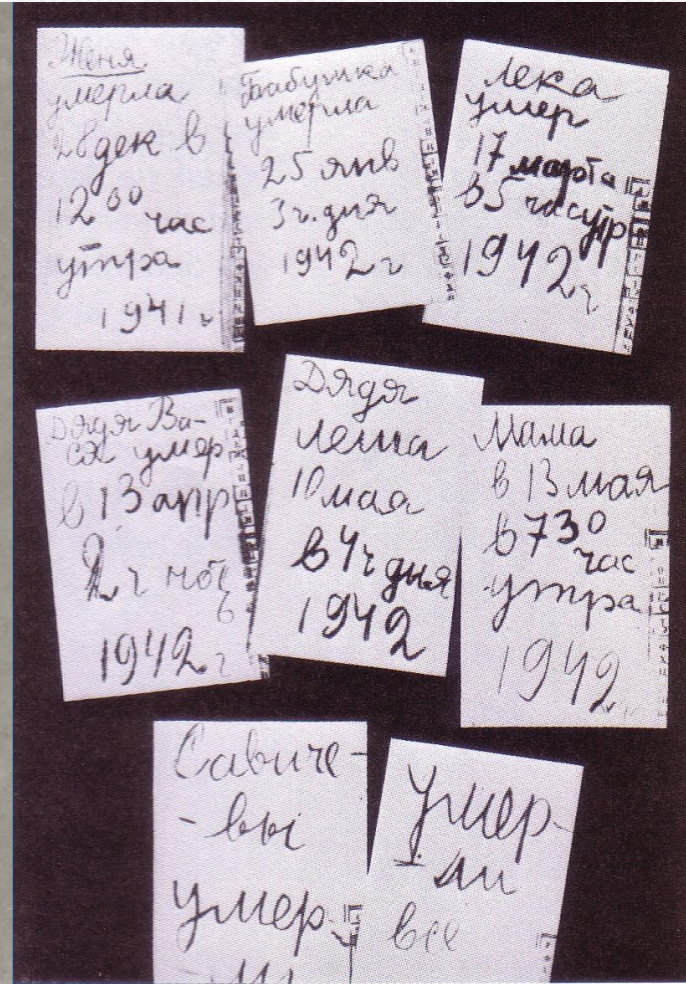 Женя
умерла
28 дек в
12 00
час
утра
1941 г
Бабушка
умерла
25 янв
3 ч. дня
1942 г
Лека
умер
17 марта
в 5 час утр
1942 г
Дядя Ва-
ся умер
в 13 апр
2 ч ночь
1942 г
Дядя
Леша
10 мая
в 4 ч дня
1942
Мама
в 13 мая
в 7 30
час
утра
1942 г
Савиче-
-вы
умер-
-ли
Умер-
-ли
все